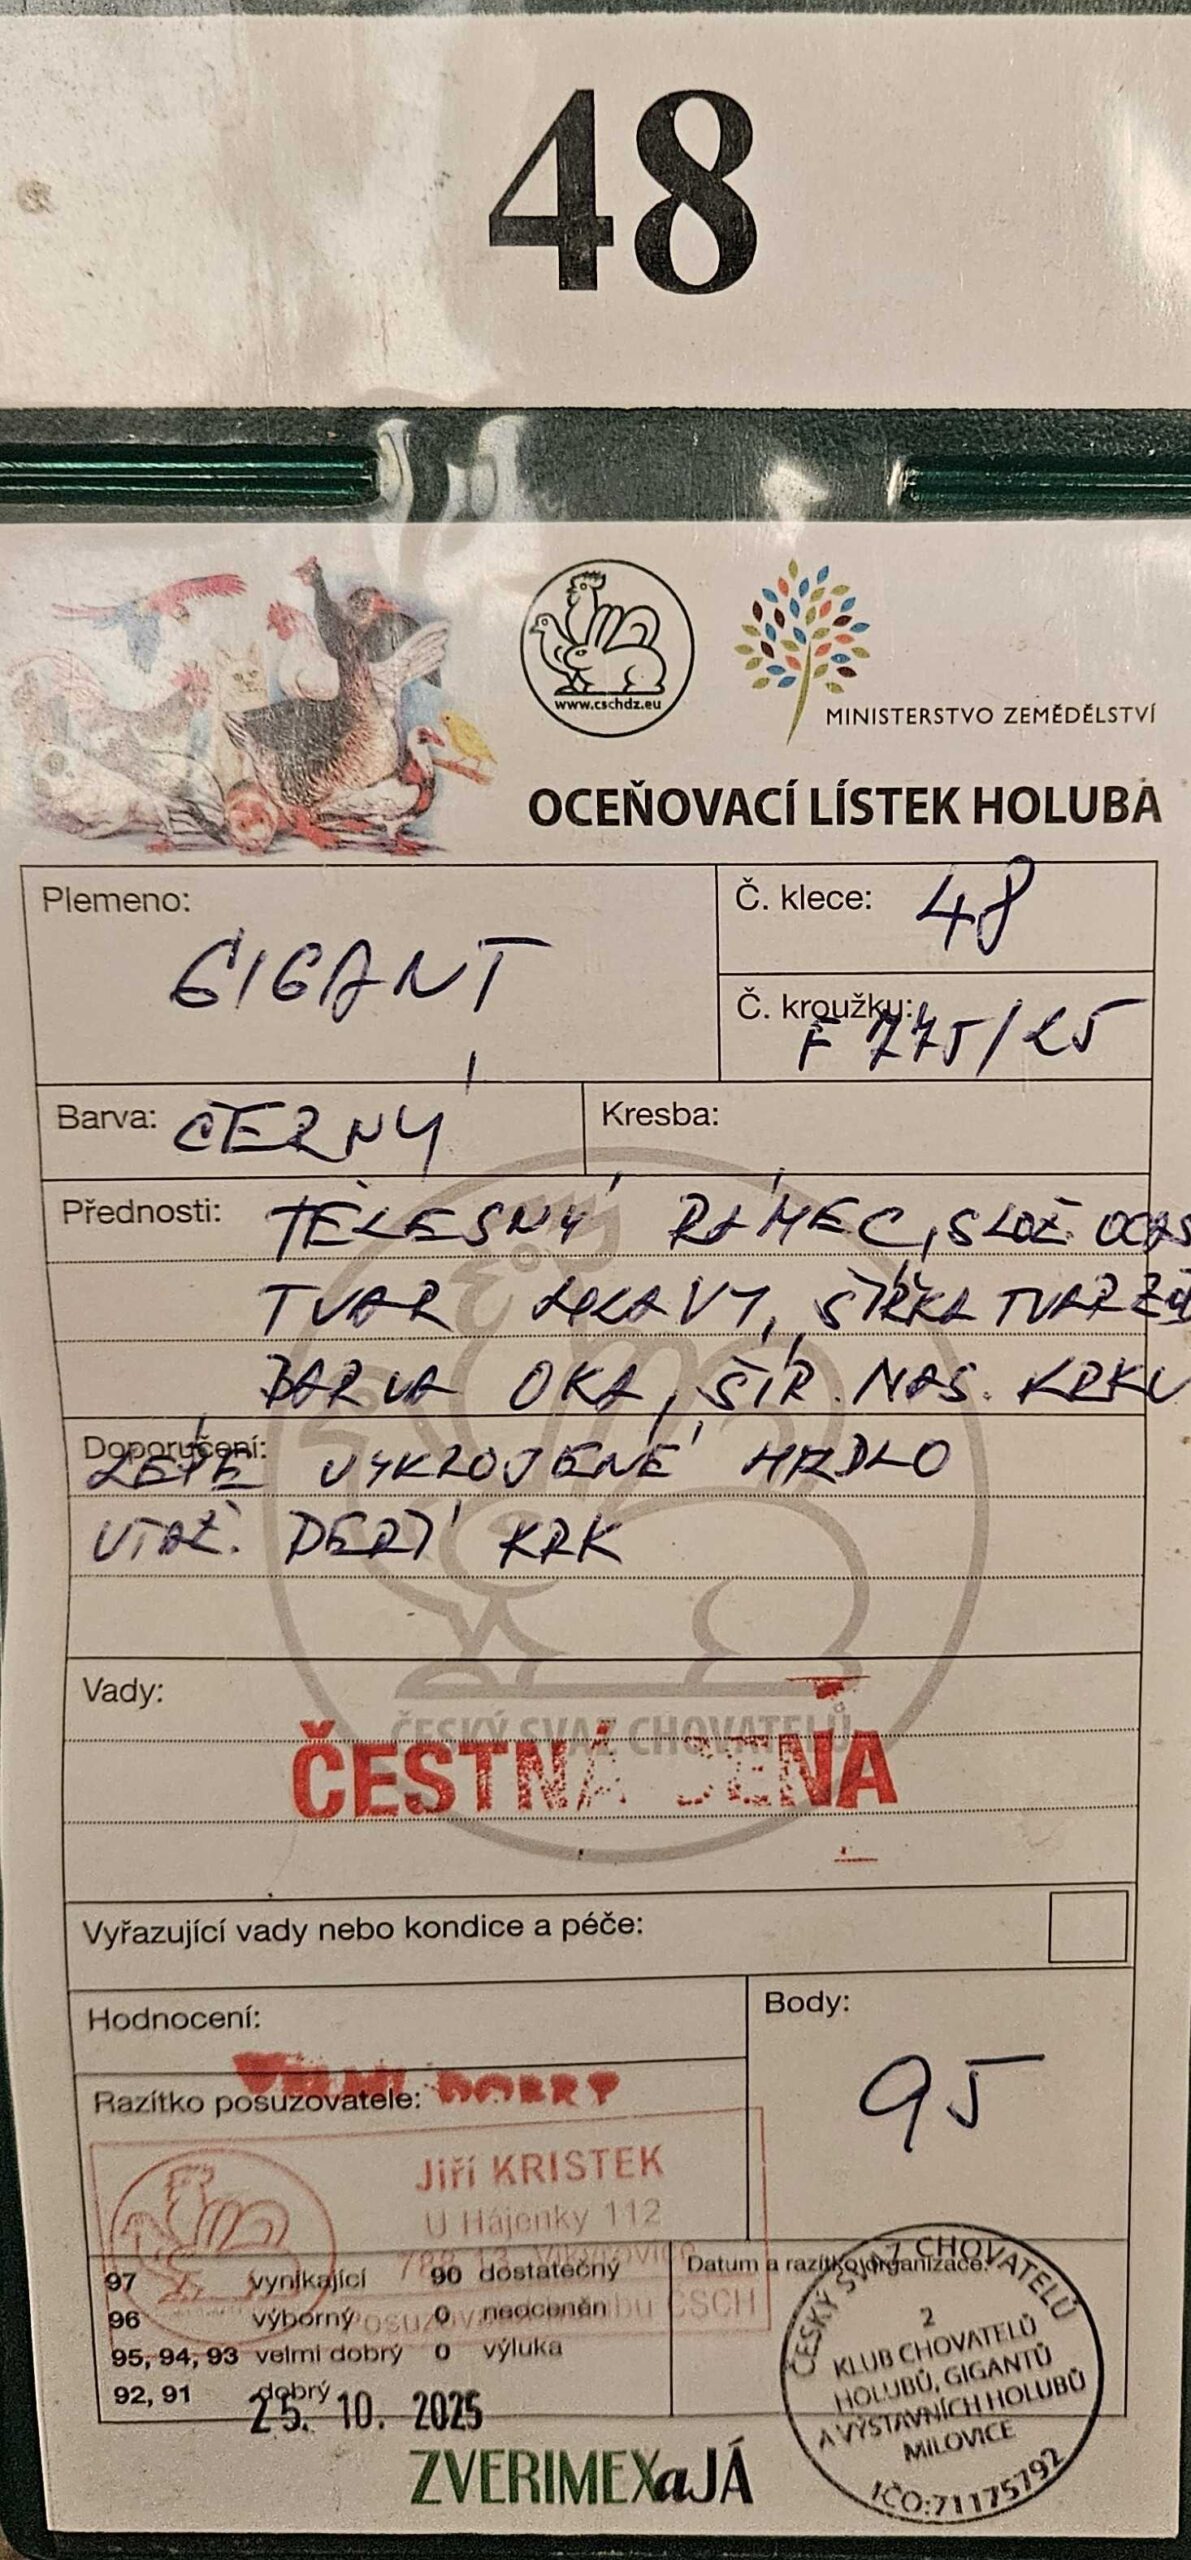 48
www.cschdz.eu
MINISTERSTVO ZEMĚDĚLSTVÍ
OCEŇOVACÍ LÍSTEK HOLUBA
Plemeno:
GIGANT
Č. klece: 48
Č. kroužku:
F 775/25
Barva: ČERNÝ
Kresba:
Přednosti: TĚLESNÝ RÁMEC, SLOŽ. OCAS
TVAR HLAVY, ŠÍŘKA TVAR
BARVA OKA, ŠÍŘ. NAS. KRKU
Doporučení:
LÉPE VYKROJENÉ HRDLO
UTAŽ. PERÍ KRK
Vady:
ČESKÝ SVAZ CHOVATELŮ
ČESTNÁ CENA
Vyřazující vady nebo kondice a péče:
Hodnocení:
VELMI DOBRÝ
Body:
95
Razítko posuzovatele:
Jiří KRISTEK
U Hájenky 112
97 vynikající 90 dostatečný
96 výborný 0 neoceněn
95, 94, 93 velmi dobrý 0 výluka
92, 91 dobrý
25. 10. 2025
Datum a razítko organizace:
ČESKÝ SVAZ CHOVATELŮ
2
KLUB CHOVATELŮ
HOLUBŮ, GIGANTŮ
A VÝSTAVNÍCH HOLUBŮ
MILOVICE
IČO:71175792
ZVERIMEXaJÁ